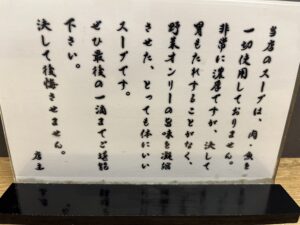 当店のスープは、肉・魚を
一切使用しておりません。
非常に濃厚ですが、決して
胃もたれすることがなく、
野菜オンリーの旨味を凝縮
させた、とっても体にいい
スープです。
ぜひ最後の一滴までご堪能
下さい。
決して後悔させません。
店主